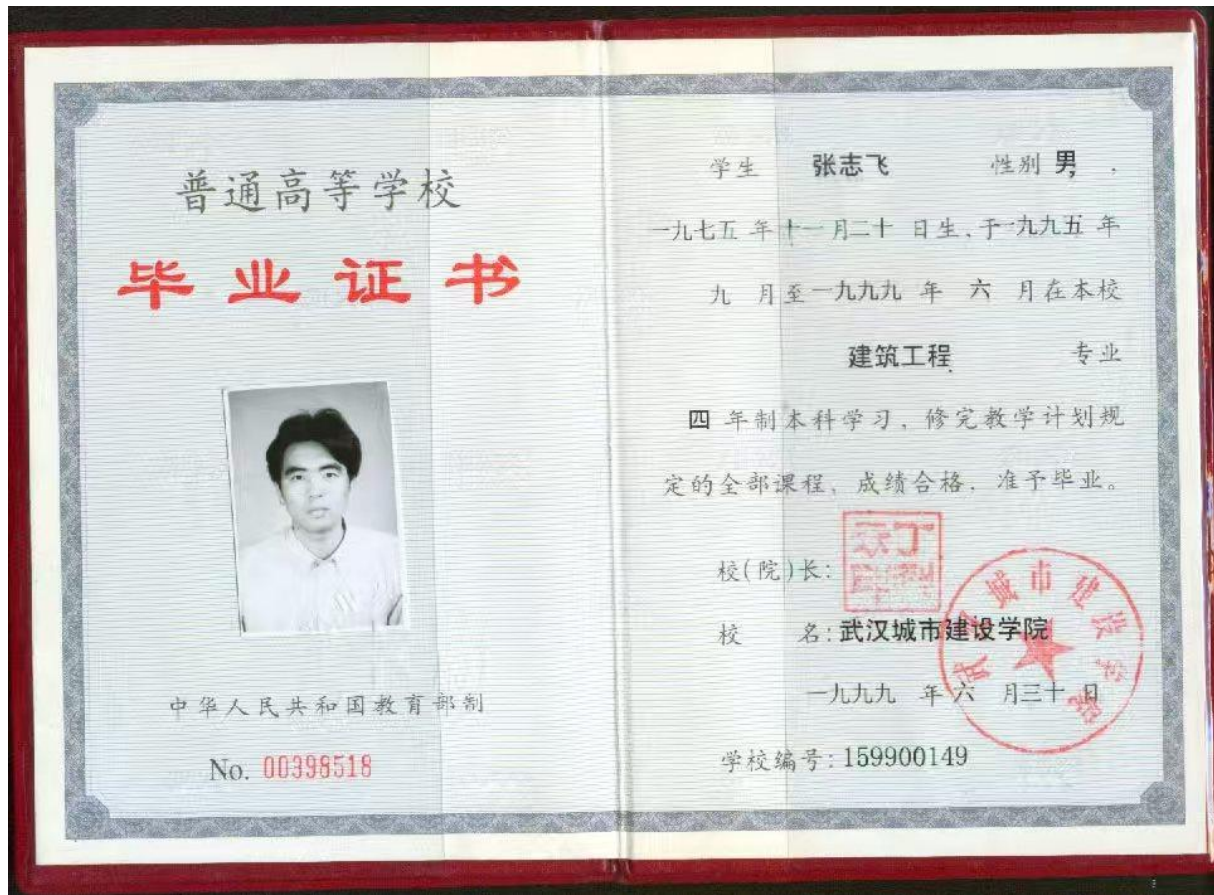 普通高等学校
毕业证书
中华人民共和国教育部制
No. 00398518
学生 张志飞 性别 男,
一九七五 年 十一 月二十 日生,于一九九五 年
九 月至一九九九 年 六 月在本校
建筑工程 专业
四 年制本科学习,修完教学计划规
定的全部课程,成绩合格,准予毕业。
校(院)长:
校 名:武汉城市建设学院
武汉城市建设学院
一九九九 年六 月三十 日
学校编号:159900149